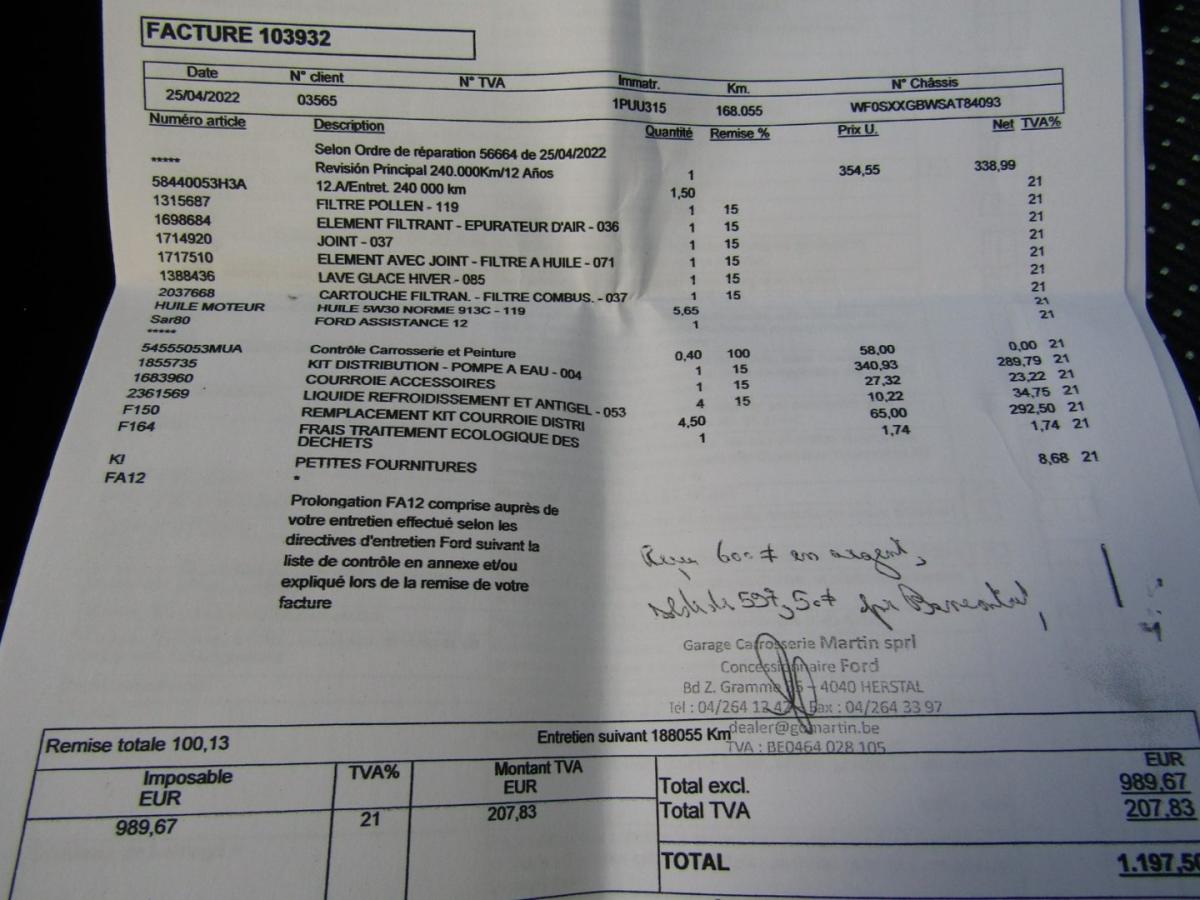 FACTURE 103932
Date N° client N° TVA Immatr. Km. N° Châssis
25/04/2022 03565 1PUU315 168.055 WF0SXXGBWSAT84093
Numéro article Description Quantité Remise % Prix U. Net TVA%
Selon Ordre de réparation 56664 de 25/04/2022
***** Revisión Principal 240.000Km/12 Años 1 354,55 338,99
58440053H3A 12.A/Entret. 240 000 km 1,50 21
1315687 FILTRE POLLEN - 119 1 15 21
1698684 ELEMENT FILTRANT - EPURATEUR D'AIR - 036 1 15 21
1714920 JOINT - 037 1 15 21
1717510 ELEMENT AVEC JOINT - FILTRE A HUILE - 071 1 15 21
1388436 LAVE GLACE HIVER - 085 1 15 21
2037668 CARTOUCHE FILTRAN. - FILTRE COMBUS. - 037 1 15 21
HUILE MOTEUR HUILE 5W30 NORME 913C - 119 5,65 21
Sar80 FORD ASSISTANCE 12 1 21
*****
54555053MUA Contrôle Carrosserie et Peinture 0,40 100 58,00 0,00 21
1855735 KIT DISTRIBUTION - POMPE A EAU - 004 1 15 340,93 289,79 21
1683960 COURROIE ACCESSOIRES 1 15 27,32 23,22 21
2361569 LIQUIDE REFROIDISSEMENT ET ANTIGEL - 053 4 15 10,22 34,75 21
F150 REMPLACEMENT KIT COURROIE DISTRI 4,50 65,00 292,50 21
F164 FRAIS TRAITEMENT ECOLOGIQUE DES 1 1,74 1,74 21
DECHETS
KI PETITES FOURNITURES 8,68 21
FA12 *
Prolongation FA12 comprise auprès de
votre entretien effectué selon les
directives d'entretien Ford suivant la
liste de contrôle en annexe et/ou
expliqué lors de la remise de votre
facture
Reçu 600 € en argent,
597,50 €
Garage Carrosserie Martin sprl
Concessionnaire Ford
Bd Z. Gramme - 4040 HERSTAL
Tél : 04/264 12 42 - Fax : 04/264 33 97
dealer@gcmartin.be
TVA : BE0464 028 105
Remise totale 100,13 Entretien suivant 188055 Km
Imposable TVA% Montant TVA EUR
EUR EUR
Total excl. 989,67
989,67 21 207,83 Total TVA 207,83
TOTAL 1.197,50